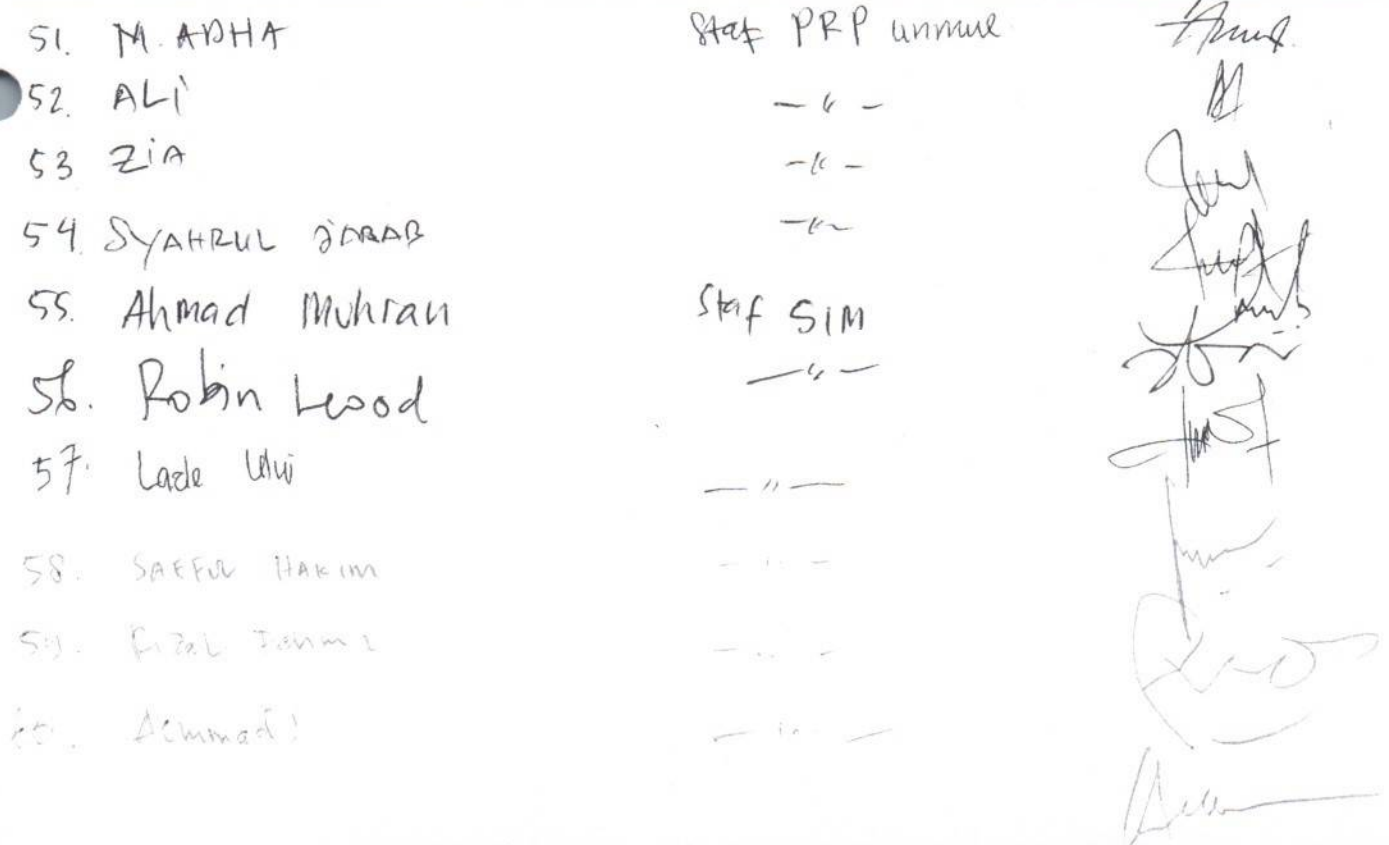 51. M. ADHA Staf PRP unmul
52. ALi — " —
53 ZiA — " —
54. SYAHRUL JABAB — " —
55. Ahmad Muhran Staf SIM
56. Robin Lwood — " —
57. Lade — " —
58. SAEFUL HAKIM — " —
59. — " —
60. — " —